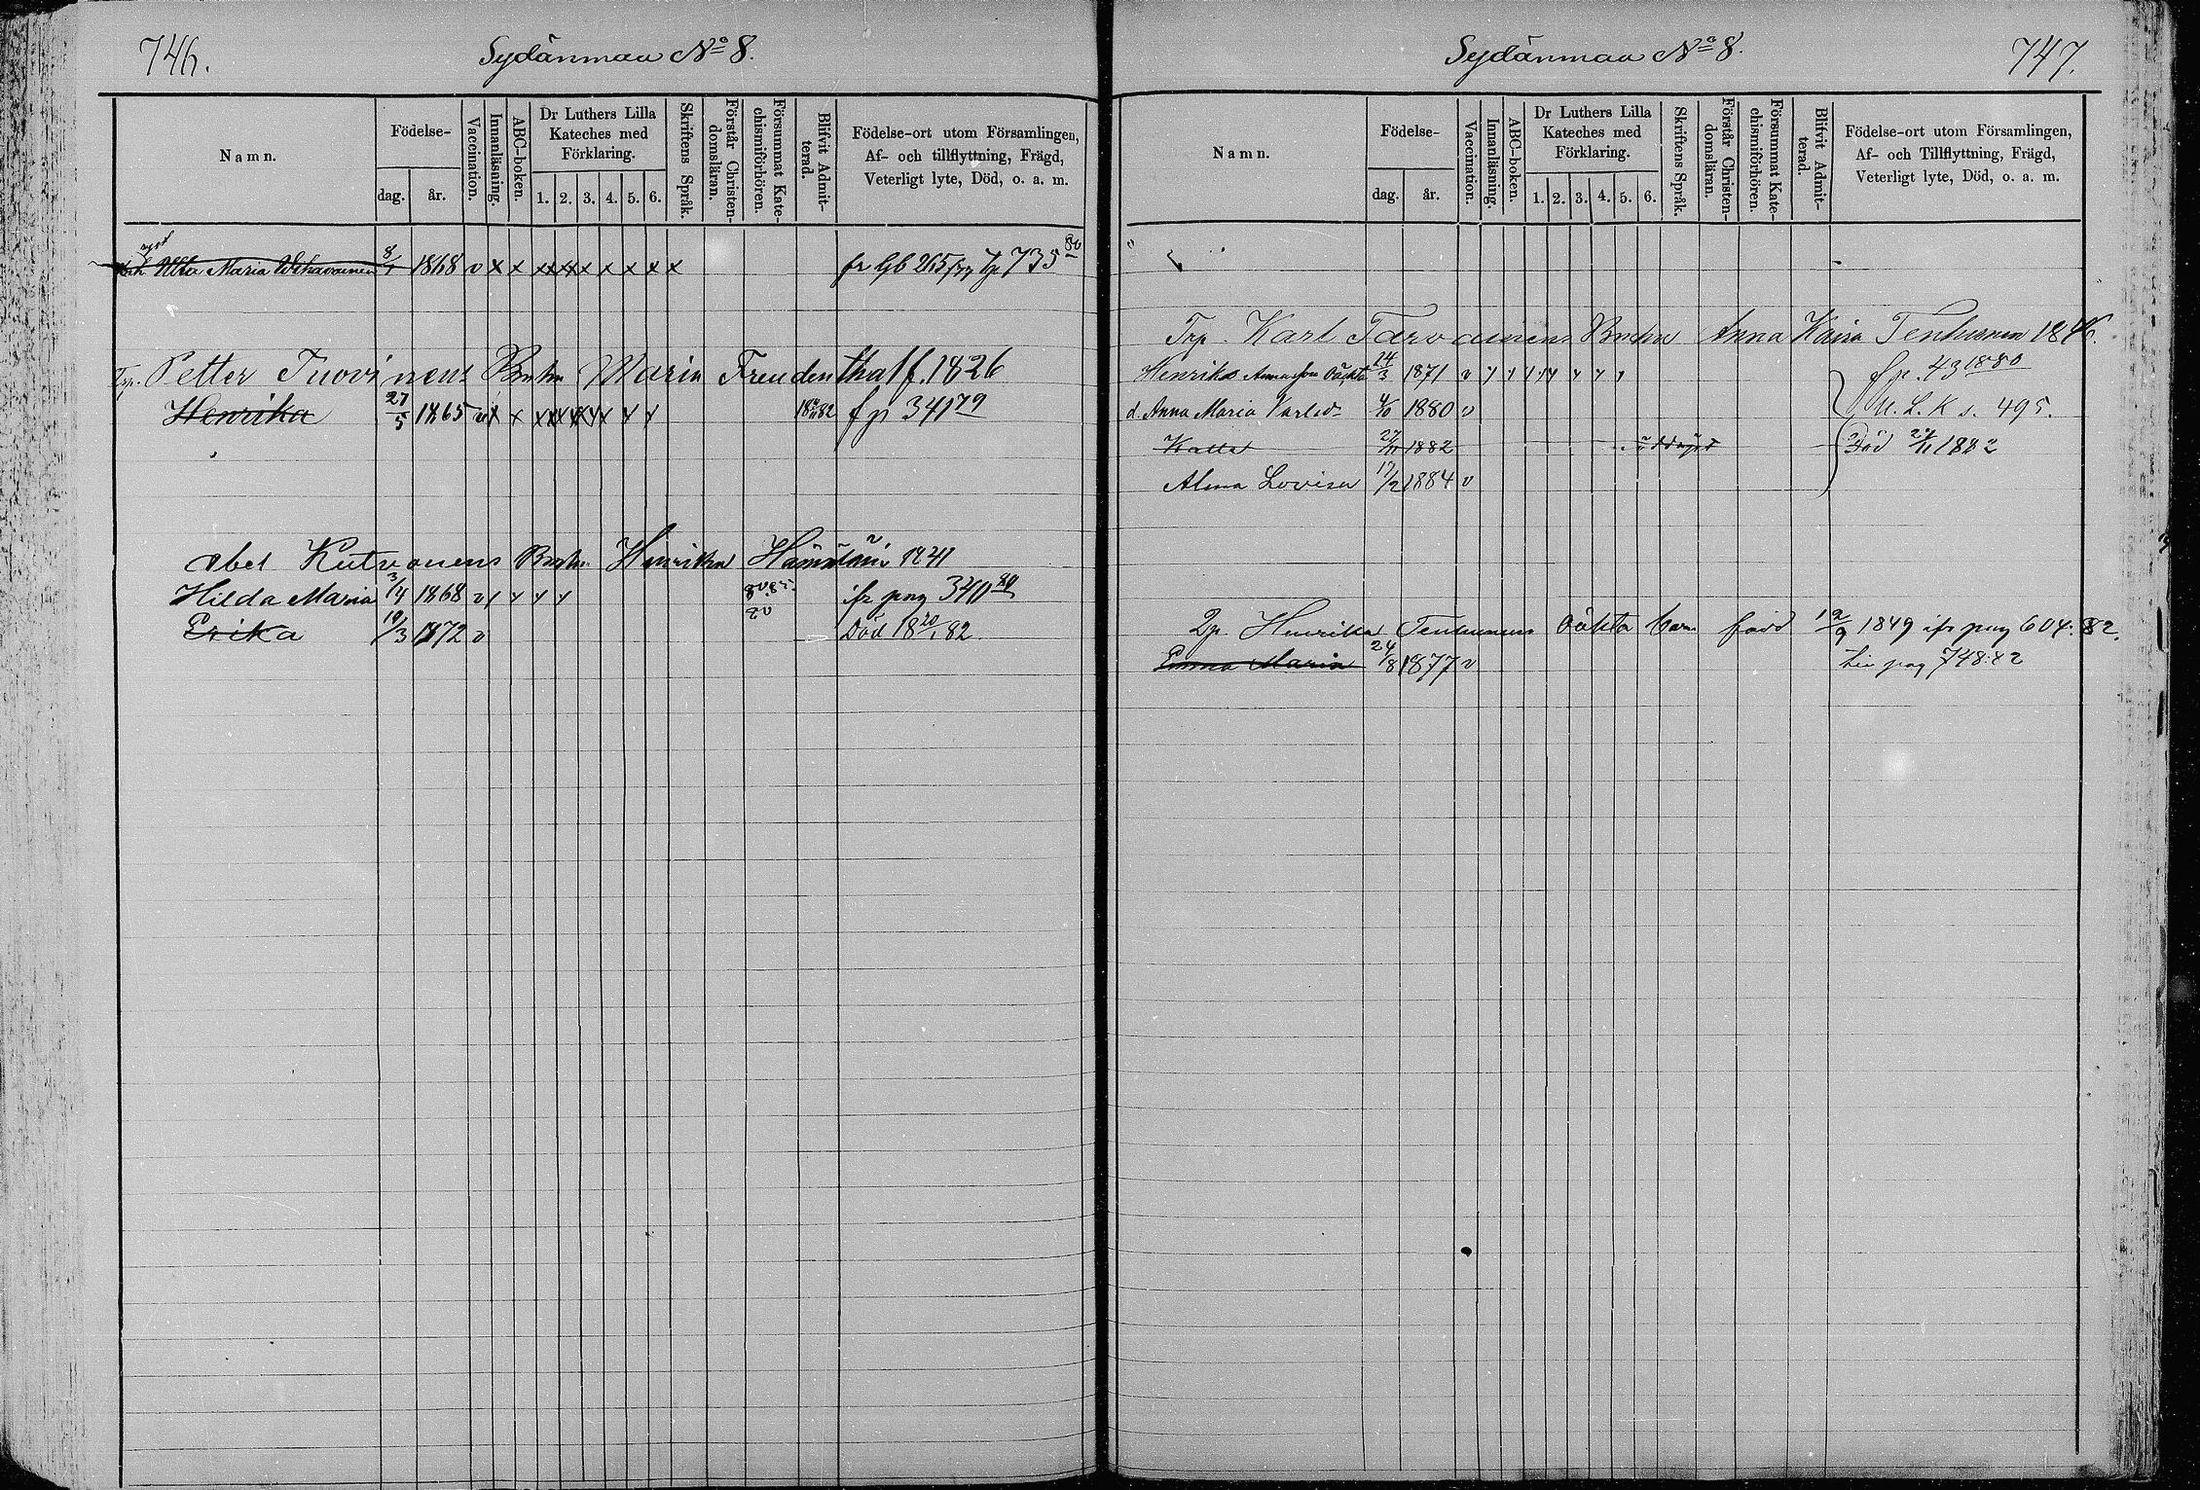 746.
Sydänmaa No 8.
Namn.
Födelse-
dag.
år.
Vaccination.
Innanläsning.
ABC-boken.
Dr Luthers Lilla
Kateches med
Förklaring.
1. 2. 3. 4. 5. 6.
Skriftens Språk.
Förstår Christen-
domsläran.
Försummat Kate-
chismiförhören.
Blifvit Admit-
terad.
Födelse-ort utom Församlingen,
Af- och tillflyttning, Frägd,
Veterligt lyte, Död, o. a. m.
Maria 8/1 1868 v x x x x x x x x x x 735 80
Petter Tuovinens Maria Freudenthal f. 1826
Henrika 27/5 1865 v x x x x x x x x fp 341 79
Abel Kutvonens Henrika 1841
Hilda Maria 3/4 1868 v ifr pag 340 80
Erika 10/3 1872 v Död 18 20/1 82
Sydänmaa No 8.
747.
Namn.
Födelse-
dag.
år.
Vaccination.
Innanläsning.
ABC-boken.
Dr Luthers Lilla
Kateches med
Förklaring.
1. 2. 3. 4. 5. 6.
Skriftens Språk.
Förstår Christen-
domsläran.
Försummat Kate-
chismiförhören.
Blifvit Admit-
terad.
Födelse-ort utom Församlingen,
Af- och Tillflyttning, Frägd,
Veterligt lyte, Död, o. a. m.
Karl Tarvainens Anna Kaisa Tenhunen 1846.
Henrik Oäkta 14/3 1871 v fp. 43 1880
d. Anna Maria Karlsd. 4/10 1880 v U. L. K s. 495.
Kalle 27/11 1882 oddöpt Död 27/11 1882
Alma Lovisa 17/2 1884 v
Henrika Tenhunens oäkta barn född 12/9 1849 ifr pag 604: 82.
Emma Maria 24/8 1877 v pag 748: 82